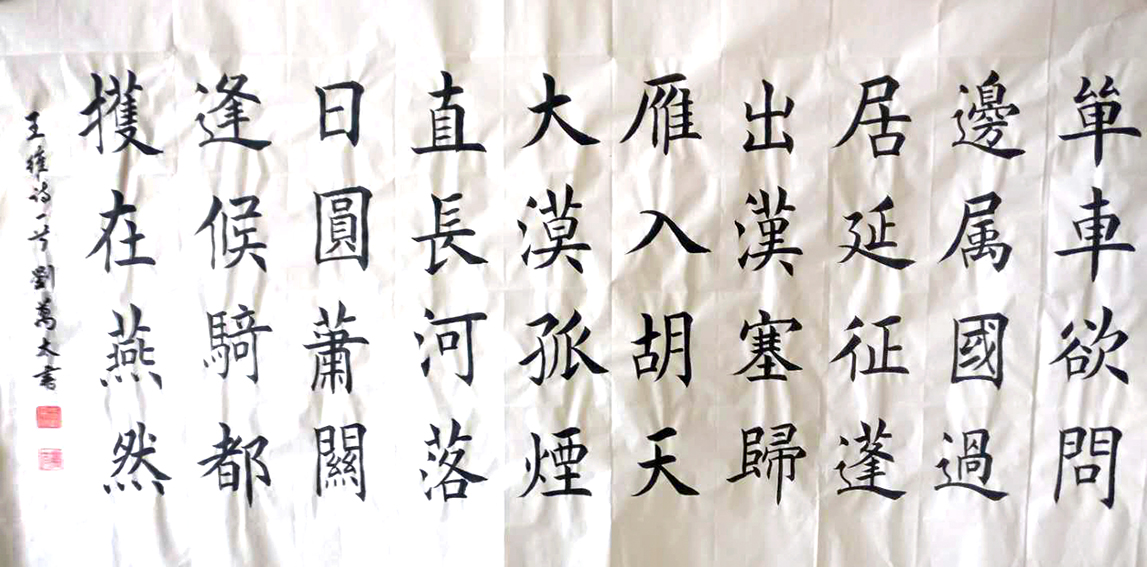 單車欲問
邊属國過
居延征蓬
出漢塞歸
雁入胡天
大漠孤煙
直長河落
日圓蕭關
逢候騎都
擭在燕然
王維詩一首劉萬大書